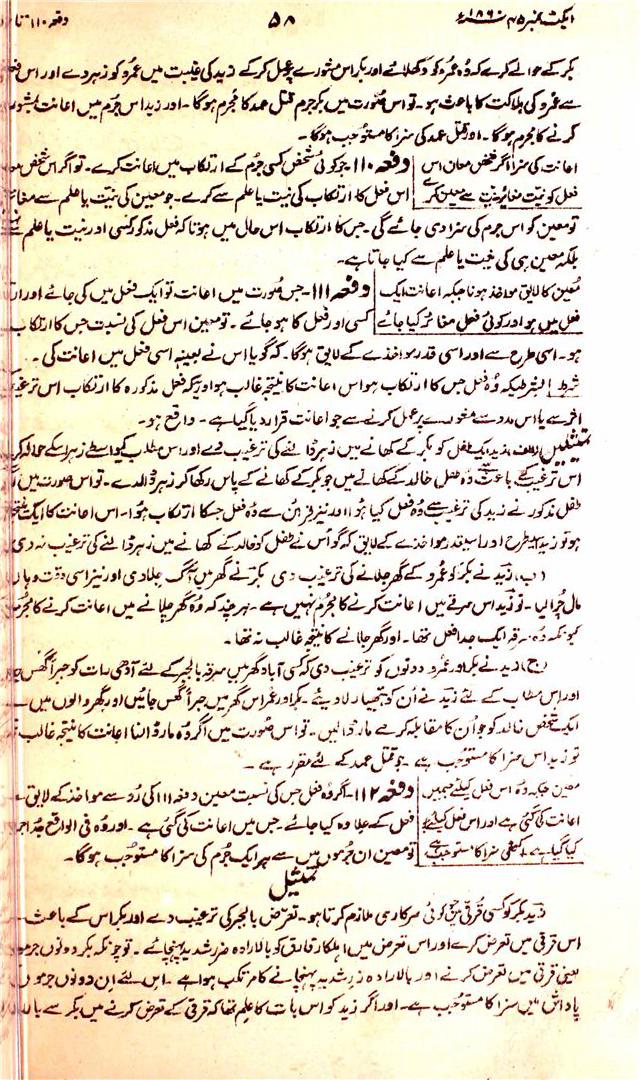 ایکٹ نمبر ۴۵ ۱۸۶۰ء ۵۸ دفعہ ۱۱۰ تا
بکر کے حوالے کرے کہ وہ عمرو کو کھلائے اور بکر اس مشورے پر عمل کرکے زید کی غیبت میں عمرو کو زہر دے اور اس
سے عمرو کی ہلاکت کا باعث ہو۔ تو اس صورت میں بکر جرم قتل عمد کا مجرم ہوگا۔ اور زید اس جرم میں اعانت
کرنے کا مجرم ہوگا۔ اور قتل عمد کی سزا کا مستوجب ہوگا۔
اعانت کی سزا اگر شخص معان اس
فعل کو نیت مغائر نیت سے معین کرے
دفعہ ۱۱۰۔ جو کوئی شخص کسی جرم کے ارتکاب میں اعانت کرے۔ تو اگر اس شخص
اس فعل کا ارتکاب کی نیت یا علم سے کرے۔ جو معین کی نیت یا علم سے
تو معین کو اس جرم کی سزا دی جائے گی۔ جس کا ارتکاب اس حال میں ہوتا کہ فعل مذکور کسی اور نیت یا علم سے
بلکہ معین ہی کی نیت یا علم سے کیا جاتا ہے۔
معین کا لایق مواخذہ ہونا جبکہ اعانت ایک
فعل میں ہو اور کوئی فعل مغائر کیا جائے
دفعہ ۱۱۱۔ جس صورت میں اعانت تو ایک فعل میں کی جائے اور
کسی اور فعل کا ہو جائے۔ تو معین اس فعل کی نسبت جس کا ارتکاب
ہو۔ اسی طرح سے اور اسی قدر مواخذے کے لایق ہوگا۔ کہ گویا اس نے بعینہ اسی فعل میں اعانت کی۔
شرط۔ بشرطیکہ وہ فعل جس کا ارتکاب ہوا اس اعانت کا نتیجہ غالب ہو اور یہ کہ فعل مذکورہ کا ارتکاب اس
یا اس مدد سے مشورے پر عمل کرنے سے جو اعانت قرار دیا گیا ہے۔ واقع ہو۔
تمثیلیں (الف) زید ایک طفل کو بکر کے کھانے میں زہر ڈالنے کی ترغیب دے اور اس مطلب کے واسطے زہر اسکے حوالہ
اس ترغیب کے باعث سے وہ طفل خالد کے کھانے میں جو بکر کے کھانے کے پاس رکھا گر زہر ڈالدے۔ تو اس صورت میں
طفل مذکور نے زید کی ترغیب سے وہ فعل کیا ہو اور نیز قرائن سے وہ فعل جسکا ارتکاب ہوا۔ اس اعانت کا ایک
ہو تو زید اسیطرح اور اسیقدر مواخذے کے لایق کہ گویا اس نے طفل کو خالد کے کھانے میں زہر ڈالنے کی ترغیب نہ دی
(ب) زید نے بکر کو عمرو کے گھر جلانے کی ترغیب دی بکر نے گھر میں آگ جلا دی اور نیز اسی وقت وہاں
مال چرا لیا۔ تو زید اس سرقے میں اعانت کرنے کا مجرم نہیں ہے۔ ہر چند کہ وہ گھر جلانے میں اعانت کرنے کا
کیونکہ وہ سرقہ ایک جدا فعل تھا۔ اور گھر جلانے کا نتیجہ غالب نہ تھا۔
(ج) زید نے بکر اور عمرو دونوں کو ترغیب دی کہ کسی آباد گھر میں سرقہ بالجبر کے لئے آدھی رات کو جبراً گھس
اور اس مطلب کے لئے زید نے ان کو ہتھیار لا دیئے۔ بکر اور عمرو اس گھر میں جبراً گھس جائیں اور گھر والوں میں
ایک شخص خالد کو جو ان کا مقابلہ کرے مار ڈالیں۔ تو اس صورت میں اگر وہ مار ڈالنا اعانت کا نتیجہ غالب
تو زید اس سزا کا مستوجب ہے۔ جو قتل عمد کے لئے مقرر ہے۔
معین جبکہ وہ اس فعل کیلئے جسمیں
اعانت کی گئی ہے اور اس فعل کیلئے جو
کیا گیا ہے۔ سزا کا مستوجب ہے
دفعہ ۱۱۲۔ اگر وہ فعل جس کی نسبت معین دفعہ ۱۱۱ کی رو سے مواخذے کے لایق
فعل کے علاوہ کیا جائے۔ جس میں اعانت کی گئی ہے۔ اور وہ فی الواقع جدا
تو معین ان جرموں میں سے ہر ایک جرم کی سزا کا مستوجب ہوگا۔
تمثیل
زید بکر کو کسی قرقی میں جو کوئی سرکاری ملازم کرتا ہو۔ تعرض بالجبر کی ترغیب دے اور بکر اس کے باعث
اس قرقی میں تعرض کرے اور اس تعرض میں اہلکار قارق کو بالارادہ ضرر شدید پہنچائے۔ تو چونکہ بکر دونوں
یعنی قرقی میں تعرض کرنے اور بالارادہ ضرر شدید پہنچانے کا مرتکب ہوا ہے۔ اس لئے ان دونوں جرموں
پاداش میں سزا کا مستوجب ہے۔ اور اگر زید کو اس بات کا علم تھا کہ قرقی کے تعرض کرنے میں بکر سے